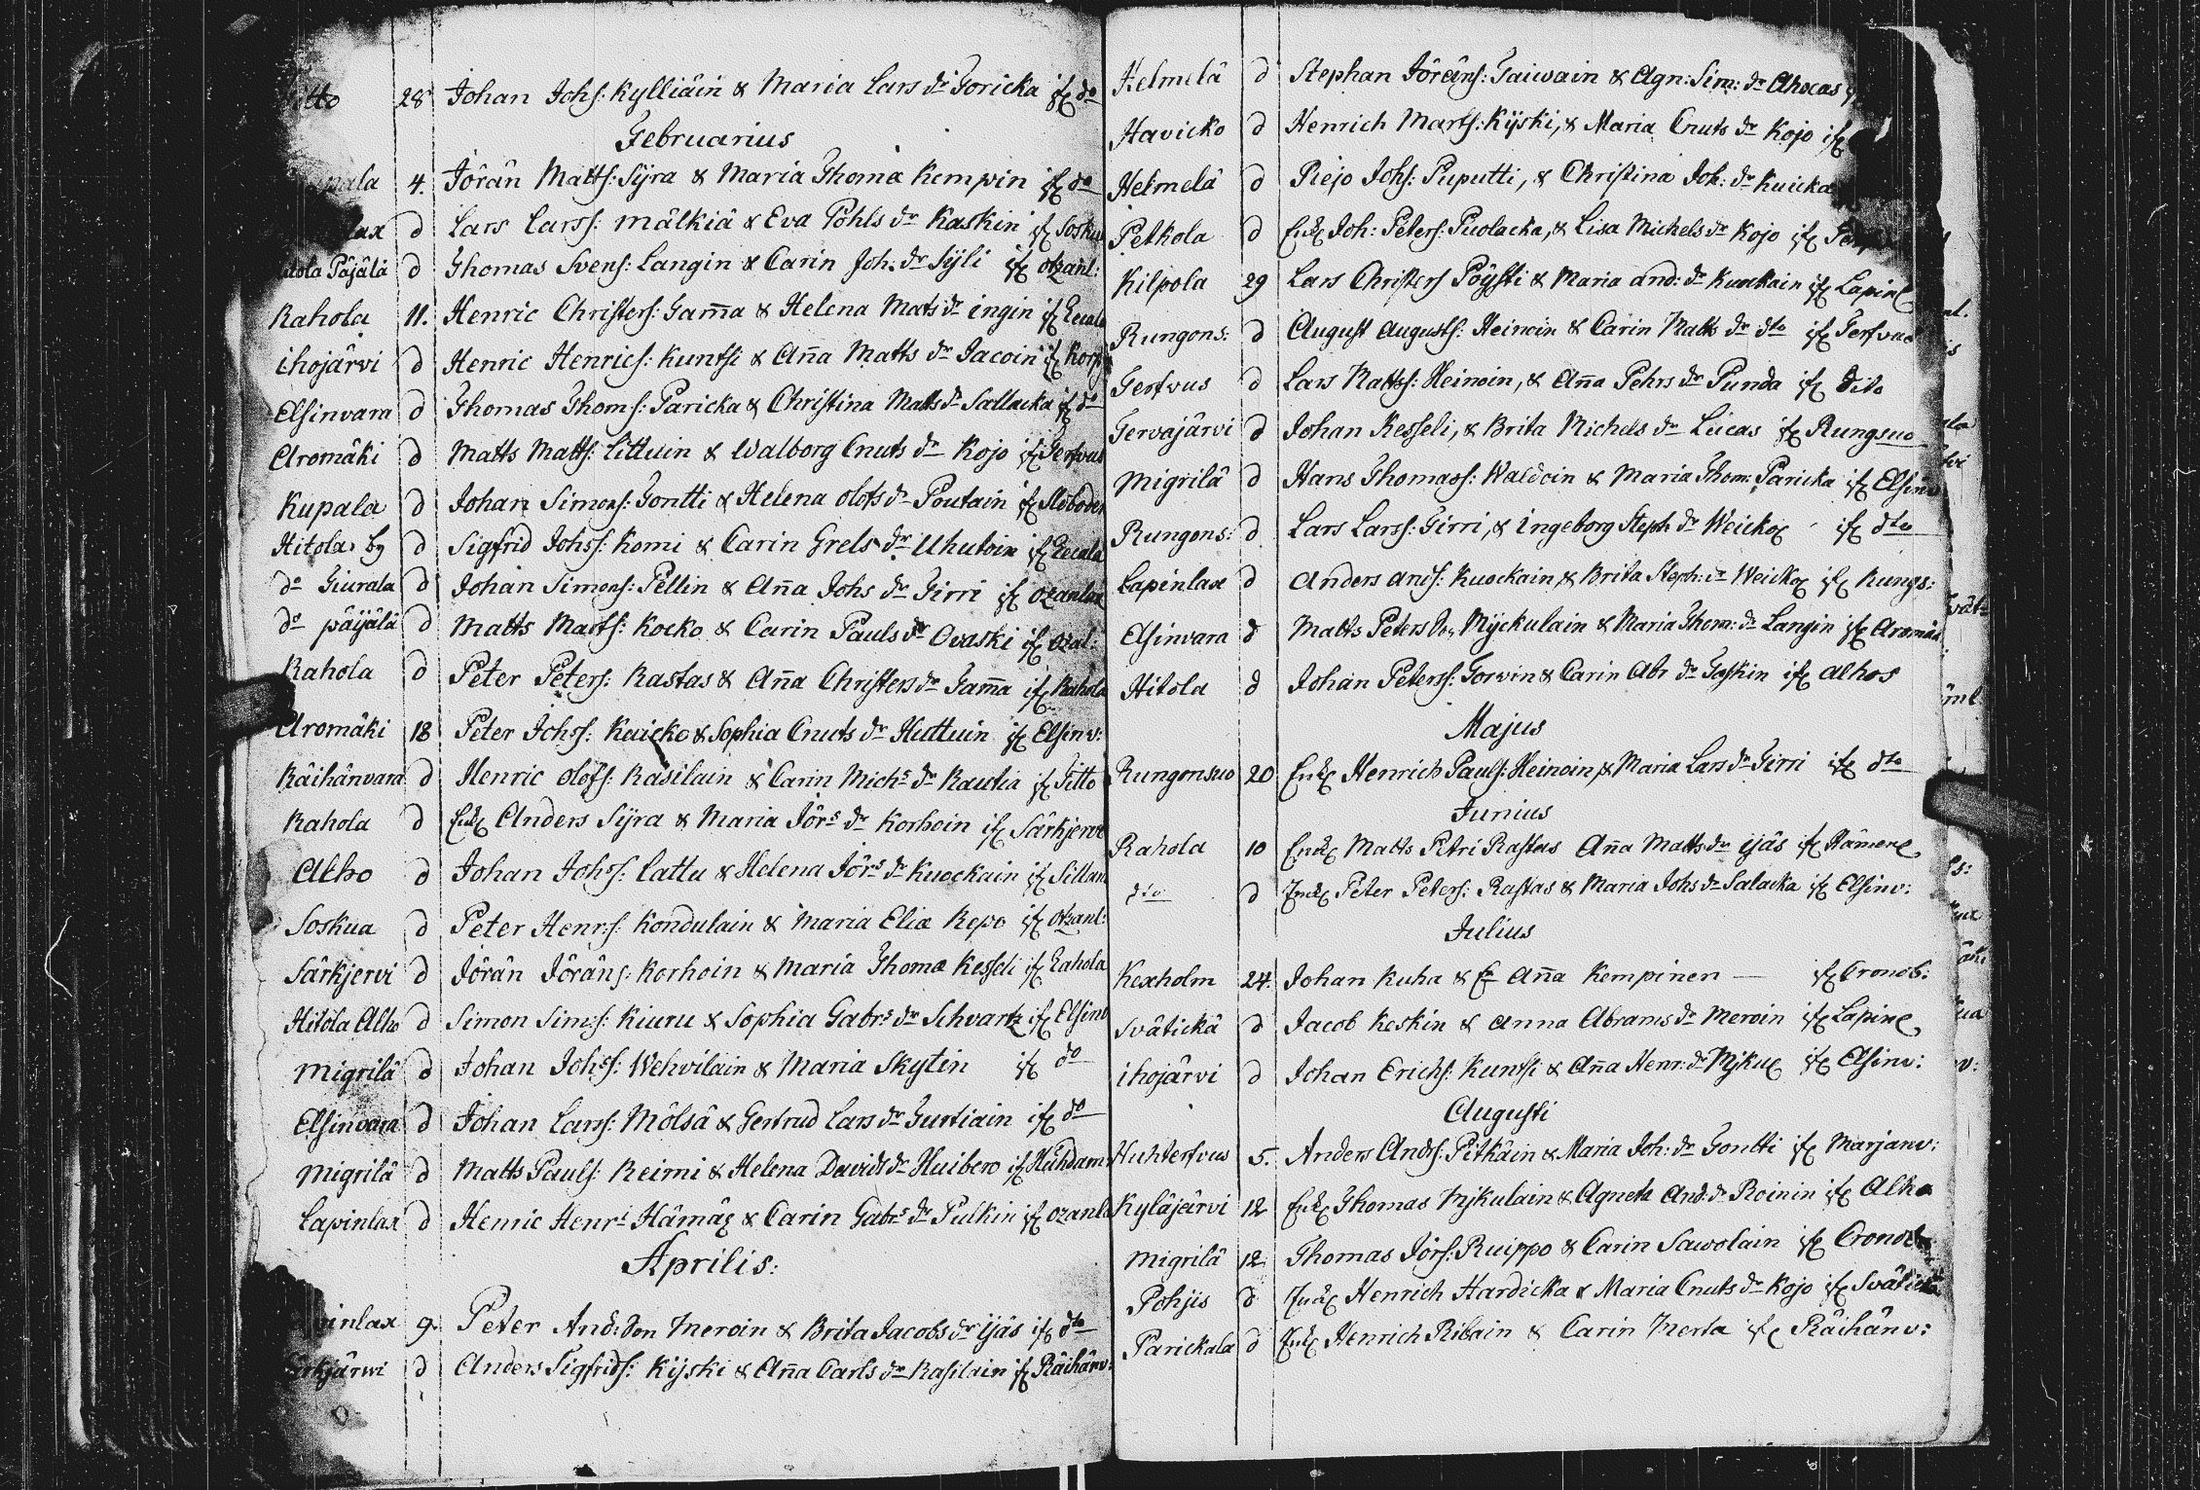 28 Johan Johs: Kylliäin & Maria Lars dr Toricka if do
Februarius
4. Jörän Matts: Syra & Maria Thoma Kempin if do
d Lars Larss: Mälkiä & Eva Pohls dr Kaskin if Sosku
Päjälä d Thomas Svens: Langin & Carin Joh. dr Syli if otzanl:
Rahola 11. Henric Christers: Tam̄a & Helena Mats dr ingin if
ihojärvi d Henric Henrics: Kuntsi & An̄a Matts dr Jacoin if
Elsinvara d Thomas Thoms: Paricka & Christina Matts dr Sallacka if do
Aromäki d Matts Matts: Littuin & Walborg Cnuts dr Kojo if Terfvus
Kupala d Johan Simons: Tontti & Helena olofs dr Poutain if Sloboden
Hitola by d Sigfrid Johss: Komi & Carin Grels dr Uhutoin if
do Tiurala d Johan Simons: Pellin & An̄a Johs dr Tirri if ozanlax
do päijälä d Matts Matts: Kocko & Carin Pauls dr Ovaski if ozal:
Rahola d Peter Peters: Rastas & An̄a Christers dr Tam̄a if Rahola
Aromäki 18 Peter Johss: Kuicko & Sophia Cnuts dr Huttuin if Elsinv:
Räihänvara d Henric olofs: Rasilain & Carin Michs dr Rautia if Titto
Rahola d Enkl Anders Syra & Maria Jörs dr Korhoin if Särkjerve
Alho d Johan Johss: Lattu & Helena Jörs dr Kuockain if
Soskua d Peter Henr:s: Kondulain & Maria Eliæ Repo if otzanl:
Särkjervi d Jörän Jöräns: Korhoin & Maria Thomæ Kesseli if Rahola
Hitola Alho d Simon Sim:s: Kiuru & Sophia Gabrs dr Schvartz if Elsinv
Migrilä d Johan Johss: Wehvilain & Maria Skytin if do
Elsinvara d Johan Larss: Mölsä & Gertrud Lars dr Turtiain if do
Migrilä d Matts Pauls: Reimi & Helena Davids dr Huibero if
Lapinlax d Henric Henrs Hämäz & Carin Gabrs dr Pulkin if ozanla
Aprilis:
inlax 9. Peter And:son Meroin & Brita Jacobs dr ijäs if dto
d Anders Sigfrids: Kijski & An̄a Carls dr Rasilain if Räihänv:
Helmelä d Stephan Jöräns: Taiwain & Agn: Sim: dr Ahocas
Havicko d Henrich Marts: Kijski, & Maria Cnuts dr Kojo if
Helmelä d Piejo Johs: Puputti, & Christina Joh: dr Kuicka
Petkola d Enkl Joh: Peters: Puolacka, & Lisa Michels dr Kojo if
Kilpola 29 Lars Christers Pöysti & Maria And: dr Kuockain if Lapinl
Rungons: d August Augusts: Heinoin & Carin Matts dr dto if Terfvus
Terfvus d Lars Mattss: Heinoin, & An̄a Pehrs dr Punda if dito
Tervajärvi d Johan Kesseli, & Brita Michels dr Lucas if Rungsuo
Migrilä d Hans Thomass: Waldoin & Maria Thom: Paricka if Elsinv
Rungons: d Lars Larss: Tirri, & ingeborg Steph dr Weickol if dto
Lapinlax d Anders Ands: Kuockain & Brita Steph: dr Weickol if Rungs:
Elsinvara d Matts Peters Myckulain & Maria Thom: dr Langin if Aromäk
Hitola d Johan Peterss: Torvin & Carin Abr dr Teskin if alhos
Majus
Rungonsuo 20 Enkl Henrich Pauls: Heinoin, & Maria Lars dr Tirri if dto
Junius
Rahola 10 Enkl Matts Petri Rastas An̄a Matts dr ijäs if Hämene
dto d Enkl Peter Peters: Rastas & Maria Johs dr Salacka if Elsinv:
Julius
Kexholm 24. Johan Kuha & An̄a Kempinen — if Cronob:
Svätickä d Jacob Keskin & Anna Abrams dr Meroin if Lapinl
ihojärvi d Johan Erichs: Kuntsi & An̄a Henr: dr Mykul if Elsinv:
Augusti
Huhterfvus 5. Anders Andrs: Pitkäin & Maria Joh: dr Tontti if Marjanv:
Kyläjärvi 12 Enkl Thomas Mykulain & Agneta And: dr Roinin if Alho
Migrilä 12 Thomas Jörs: Ruippo & Carin Sawolain if Cronob
Pohjis d Enkl Henrich Hardicka & Maria Cnuts dr Kojo if Svätick
Parickala d Enkl Henrich Ribain & Carin Merta if Räihänv: